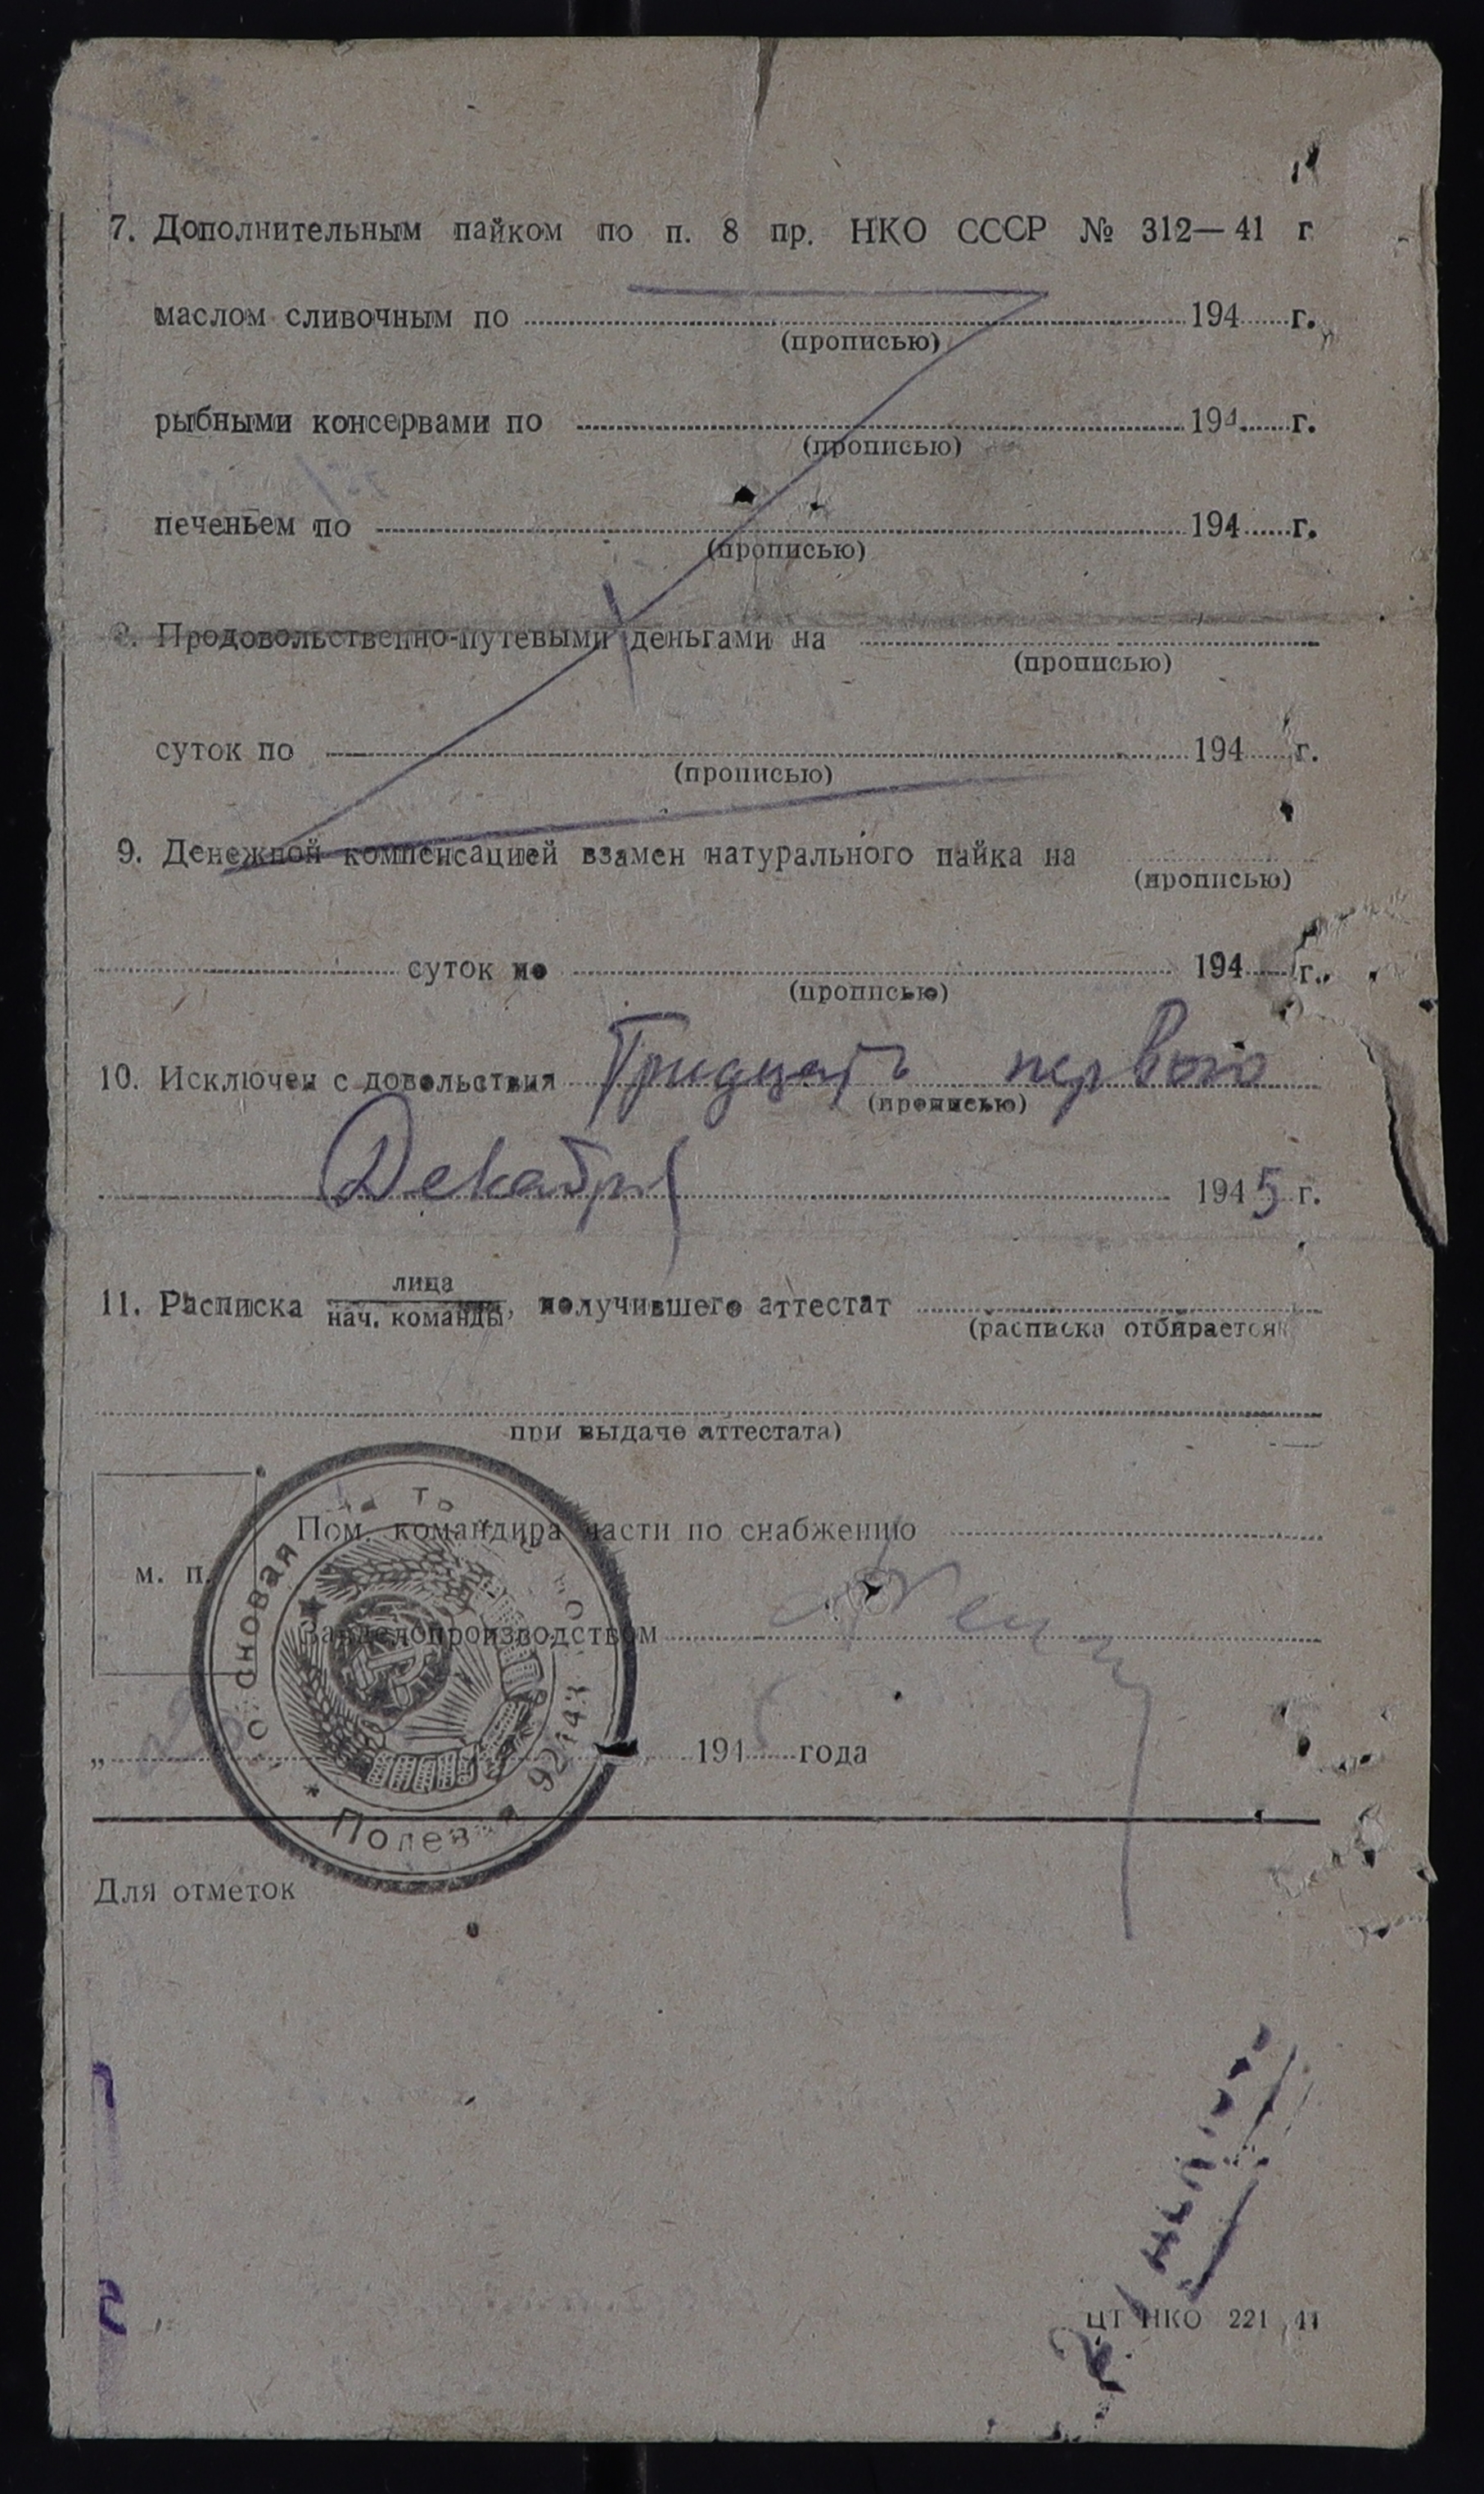 7. Дополнительным пайком по п. 8 пр. НКО СССР № 312—41 г
маслом сливочным по 194 г.
(прописью)
рыбными консервами по 194 г.
(прописью)
печеньем по 194 г.
(прописью)
8. Продовольственно-путевыми деньгами на
(прописью)
суток по 194 г.
(прописью)
9. Денежной компенсацией взамен натурального пайка на
(прописью)
суток по 194 г.
(прописью)
10. Исключен с довольствия Тридцать первого
(прописью)
Декабря 1945 г.
11. Расписка лица
нач. команды, получившего аттестат
(расписка отбирается
при выдаче аттестата)
Пом. командира части по снабжению
м. п.
Зав. делопроизводством
" 194 года
Полевая
Для отметок
ЦТ НКО 221 41